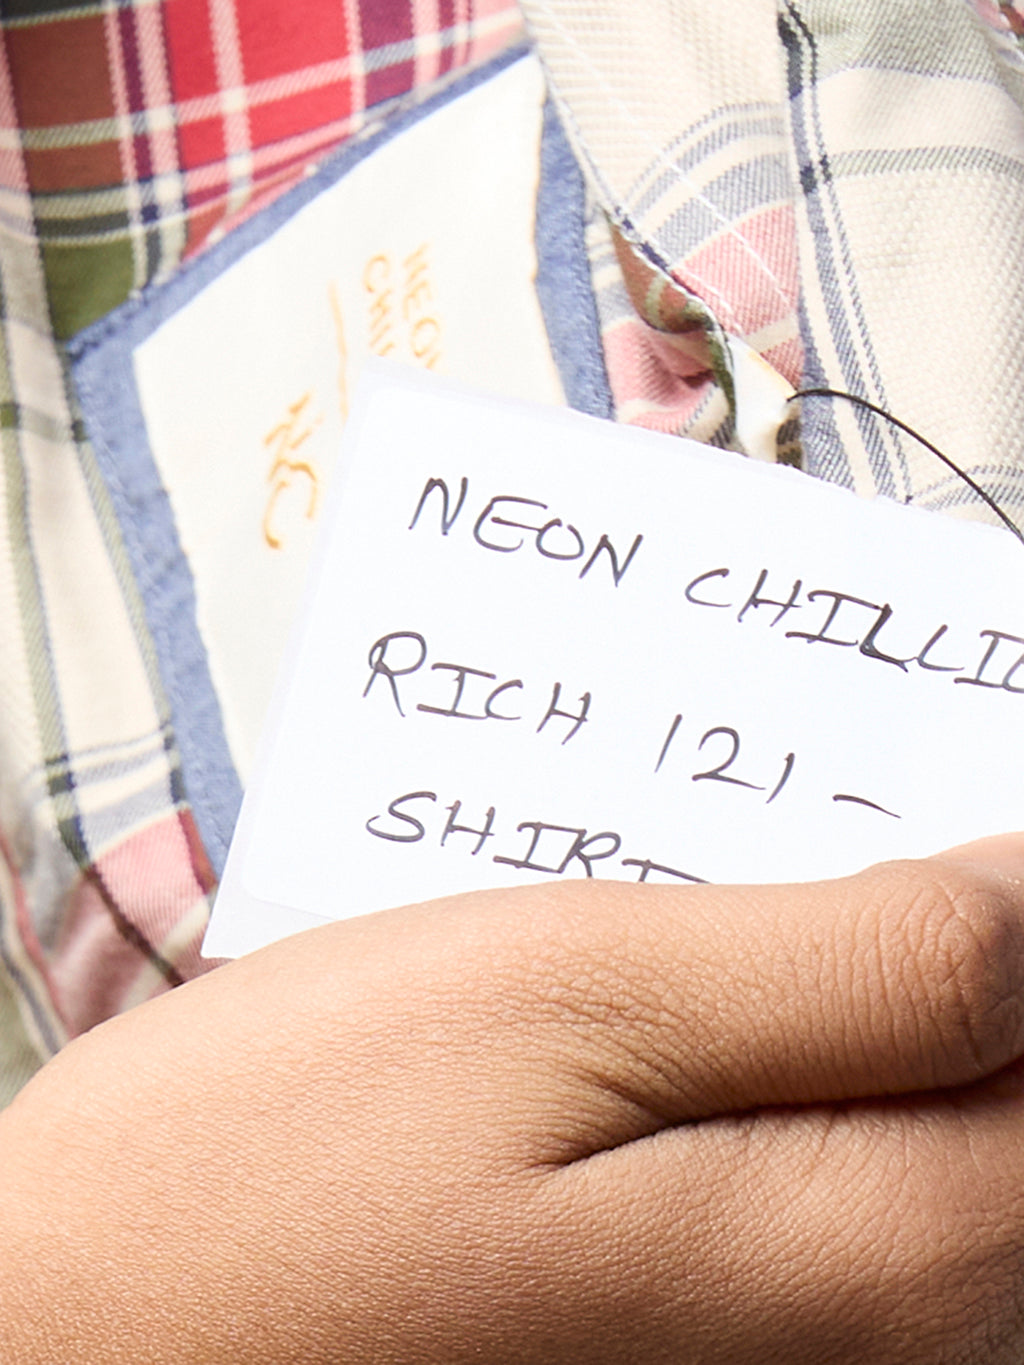 NEON
CHI
NC
NEON CHILLI
RICH 121 -
SHIRT